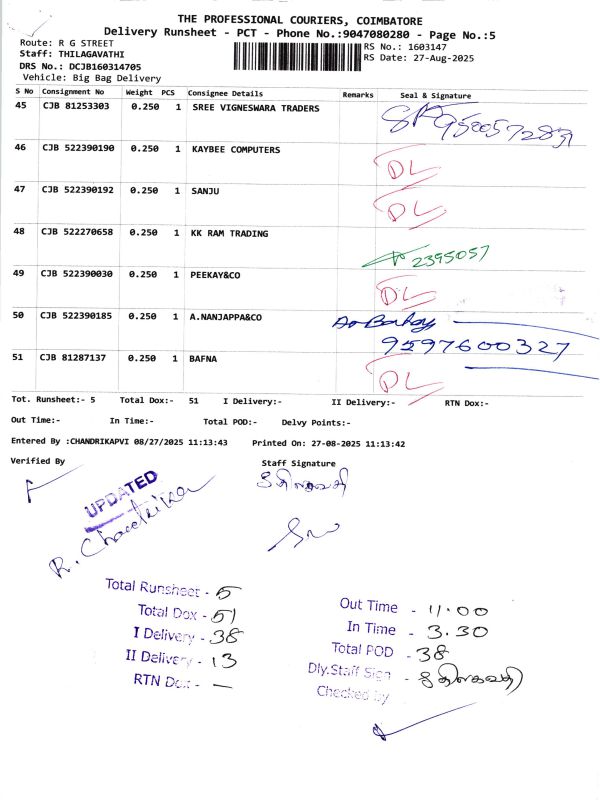 THE PROFESSIONAL COURIERS, COIMBATORE
Delivery Runsheet - PCT - Phone No.:9047080280 - Page No.:5
Route: R G STREET
Staff: THILAGAVATHI
DRS No.: DCJB160314705
Vehicle: Big Bag Delivery
RS No.: 1603147
RS Date: 27-Aug-2025
S No Consignment No Weight PCS Consignee Details Remarks Seal & Signature
45 CJB 81253303 0.250 1 SREE VIGNESWARA TRADERS
46 CJB 522390190 0.250 1 KAYBEE COMPUTERS DL
47 CJB 522390192 0.250 1 SANJU DL
48 CJB 522270658 0.250 1 KK RAM TRADING 2395057
49 CJB 522390030 0.250 1 PEEKAY&CO DL
50 CJB 522390185 0.250 1 A.NANJAPPA&CO
9597600327
51 CJB 81287137 0.250 1 BAFNA DL
Tot. Runsheet:- 5 Total Dox:- 51 I Delivery:- II Delivery:- RTN Dox:-
Out Time:- In Time:- Total POD:- Delvy Points:-
Entered By :CHANDRIKAPVI 08/27/2025 11:13:43 Printed On: 27-08-2025 11:13:42
Verified By Staff Signature
UPDATED
R. Chandrika
Total Runsheet - 5
Total Dox - 51
I Delivery - 38
II Delivery - 13
RTN Dox - —
Out Time - 11.00
In Time - 3.30
Total POD - 38
Dly.Staff Sign - திலகவதி
Checked by